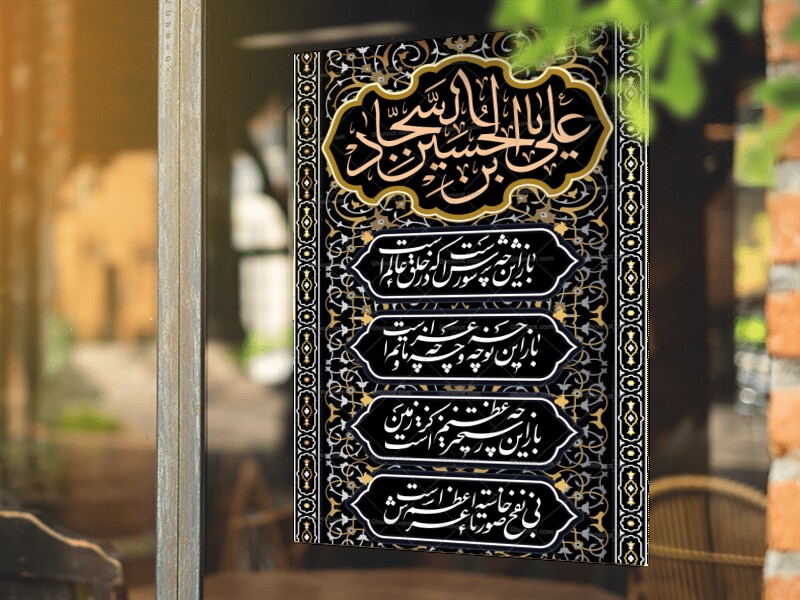 یا علی بن الحسین السجاد
باز این چه شورش است که در خلق عالم است
باز این چه نوحه و چه عزا و چه ماتم است
باز این چه رستخیز عظیم است کز زمین
بی نفخ صور خاسته تا عرش اعظم است